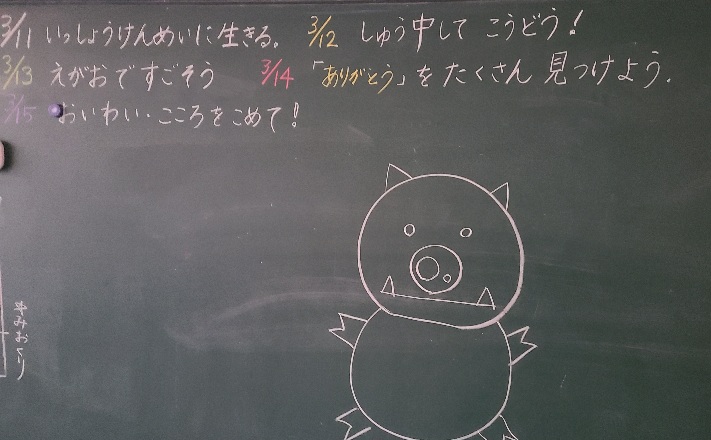 3/11 いっしょうけんめいに生きる。 3/12 しゅう中して こうどう!
3/13 えがおですごそう 3/14 「ありがとう」を たくさん 見つけよう.
3/15 おいわい・こころをこめて!